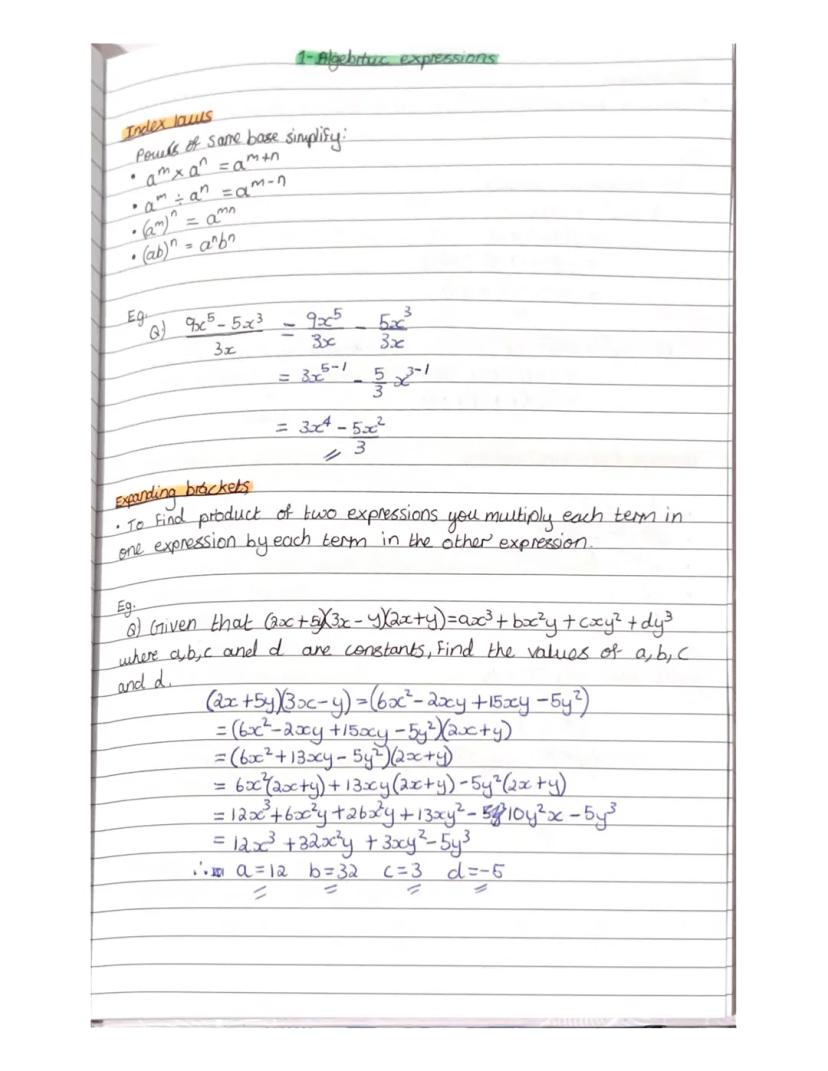 1- Algebraic expressions
Index laws
Powers of same base simplify:
• aᵐ × aⁿ = aᵐ⁺ⁿ
• aᵐ ÷ aⁿ = aᵐ⁻ⁿ
• (aᵐ)ⁿ = aᵐⁿ
• (ab)ⁿ = aⁿbⁿ
Eg.
Q) (9x⁵ - 5x³)/3x = 9x⁵/3x - 5x³/3x
= 3x⁵⁻¹ - 5/3 x³⁻¹
= 3x⁴ - 5x²/3
Expanding brackets
• To find product of two expressions you multiply each term in
one expression by each term in the other expression.
Eg.
Q) Given that (2x+5y)(3x-y)(2x+y)=ax³+bx²y+cxy²+dy³
where a,b,c and d are constants, Find the values of a,b,c
and d.
(2x+5y)(3x-y)=(6x²-2xy+15xy-5y²)
=(6x²-2xy+15xy-5y²)(2x+y)
=(6x²+13xy-5y²)(2x+y)
= 6x²(2x+y)+13xy(2x+y)-5y²(2x+y)
= 12x³+6x²y+26x²y+13xy²-10y²x-5y³
= 12x³+32x²y+3xy²-5y³
∴ a=12 b=32 c=3 d=-5